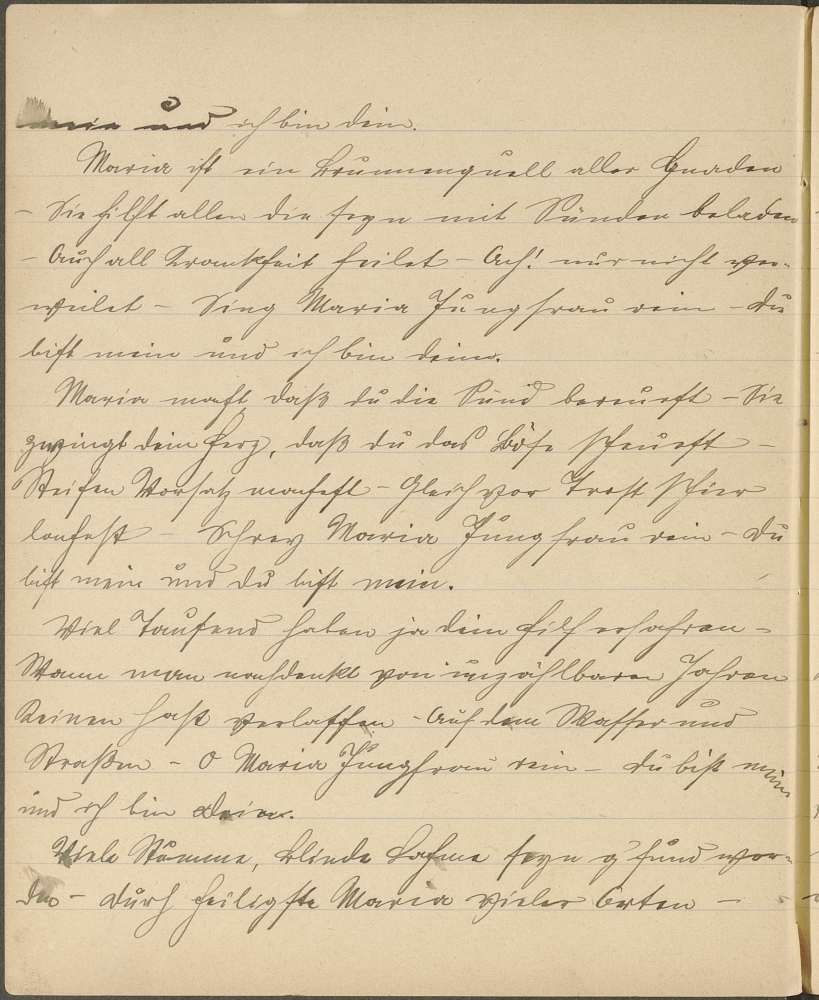 mein und ich bin dein.
Maria ist ein Brunnenquell aller Gnaden
- Sie hilft allen die seyn mit Sünden beladen
- Auch all Krankheit heilet - Ach! nur nicht ver-
weilet - Sing Maria Jungfrau rein - du
bist mein und ich bin dein.
Maria macht daß du die Sünd bereuest - Sie
zwingt dein Herz, daß du das Böse scheuest -
Steifen Vorsatz machest - Gleich vor Trost schier
lachest - Schrey Maria Jungfrau rein - du
bist mein und du bist mein.
Viel Tausend haben ja dein Hilf erfahren -
Wann man nachdenkt von unzählbaren Jahren
Keinen hast verlassen - Auf dem Wasser und
Straßen - O Maria Jungfrau rein - du bist mein
und ich bin dein.
Viele Stumme, blinde Lahme seyn g'sund wor-
den - durch heiligste Maria vieler Orten -